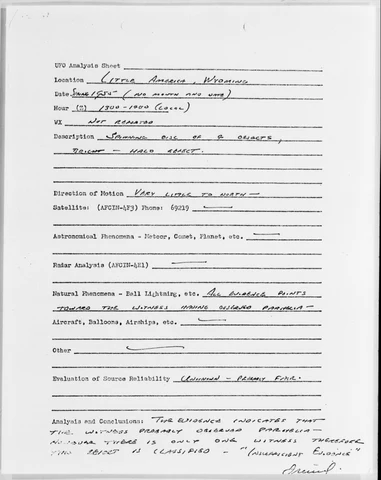 UFO Analysis Sheet
Location Little America, Wyoming
Date 1950 (no month and day)
Hour (Z) 1300-1900 (local)
WX Not reported
Description Spinning disc of 9 objects,
bright - halo effect.
Direction of Motion Very little to north -
Satellite: (AFCIN-4F3) Phone: 69219
Astronomical Phenomena - Meteor, Comet, Planet, etc.
Radar Analysis (AFCIN-4E1)
Natural Phenomena - Ball Lightning, etc. All evidence points
toward the witness having observed parhelia -
Aircraft, Balloons, Airships, etc.
Other
Evaluation of Source Reliability Unknown - probably fair.
Analysis and Conclusions: The evidence indicates that
the witness probably observed parhelia -
However there is only one witness therefore
this object is classified - "Insufficient Evidence"